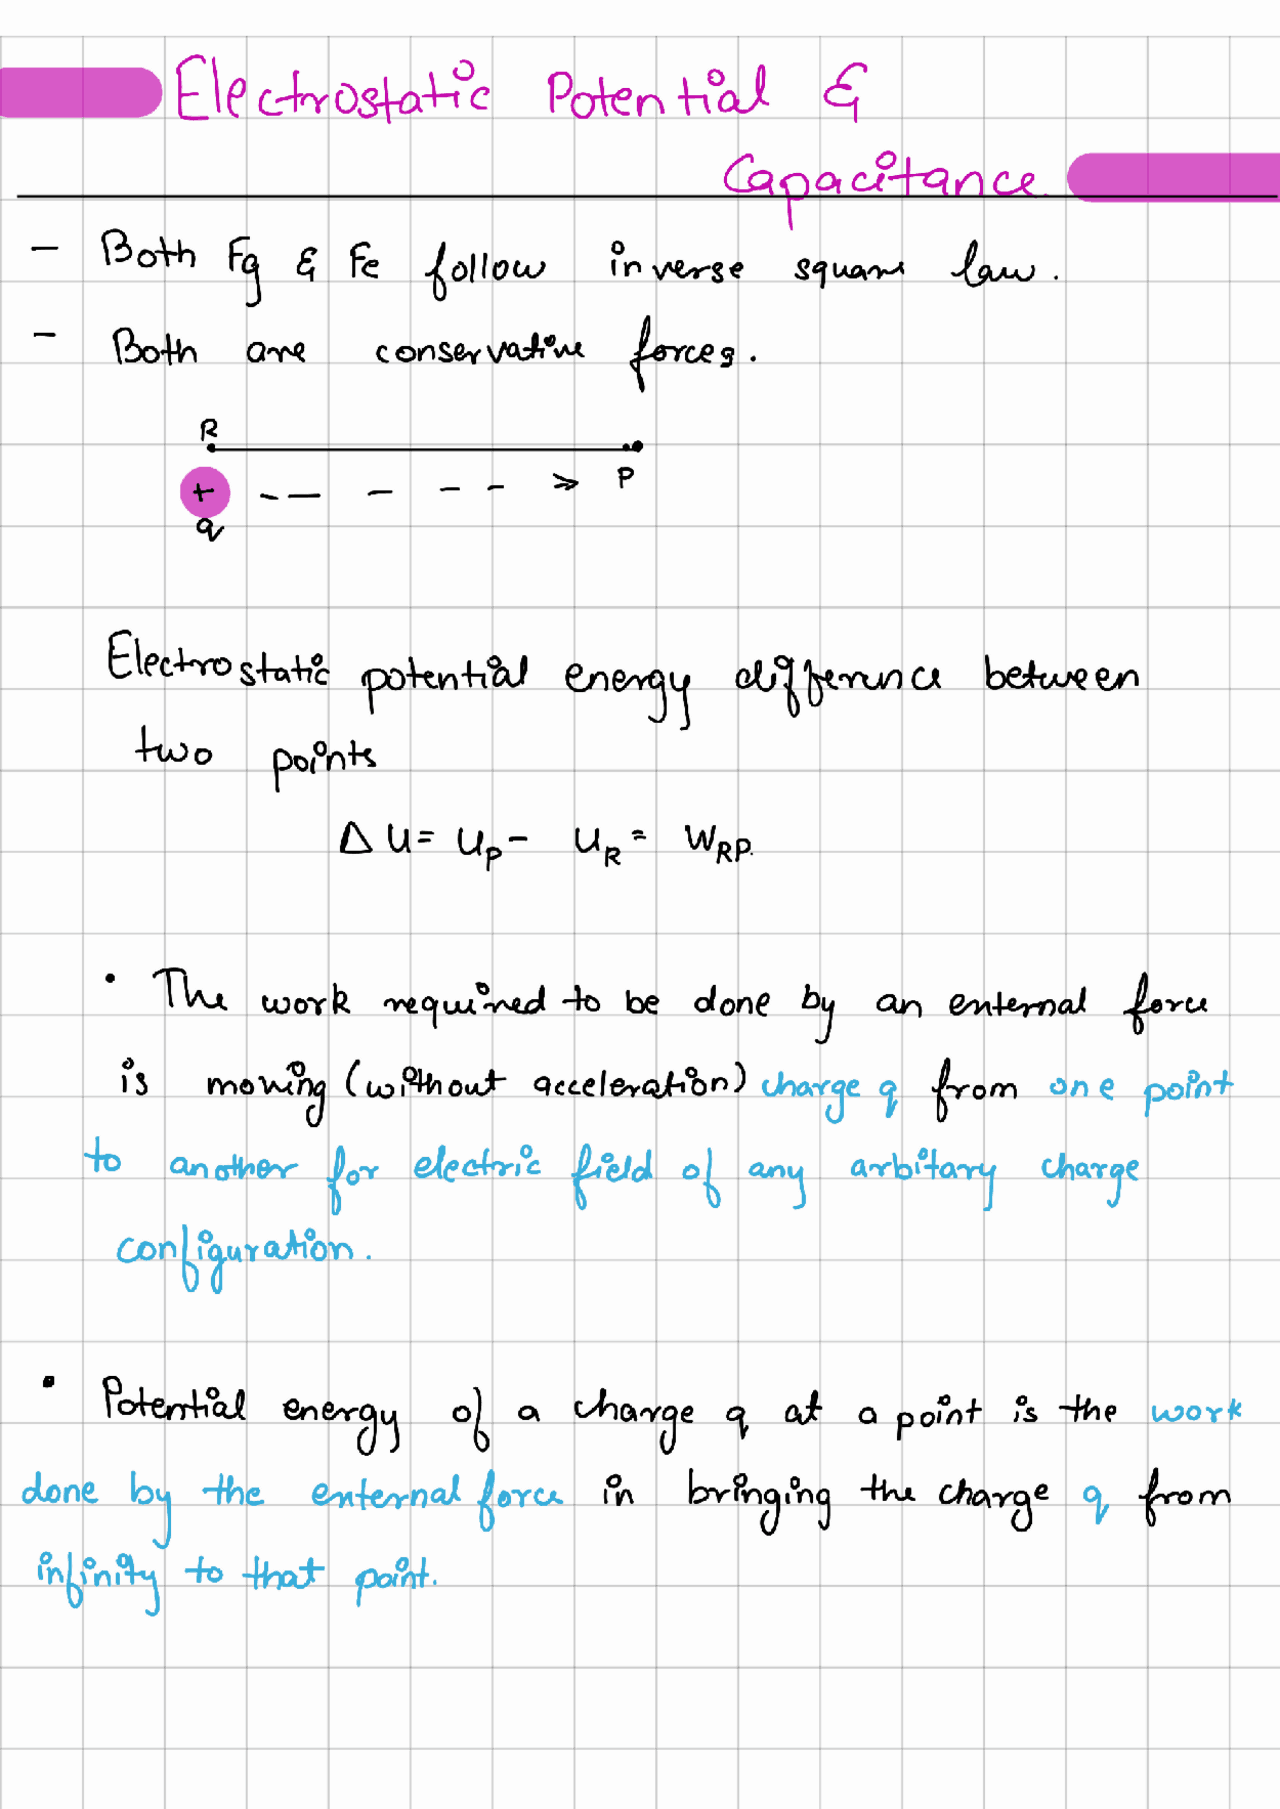 Electrostatic Potential &
Capacitance.
- Both Fg & Fe follow inverse square law.
- Both are conservative forces.
R
P
+
q
Electrostatic potential energy difference between
two points
Δ U = U_P - U_R = W_RP.
• The work required to be done by an enternal force
is moving (without acceleration) charge q from one point
to another for electric field of any arbitary charge
configuration.
• Potential energy of a charge q at a point is the work
done by the enternal force in bringing the charge q from
infinity to that point.